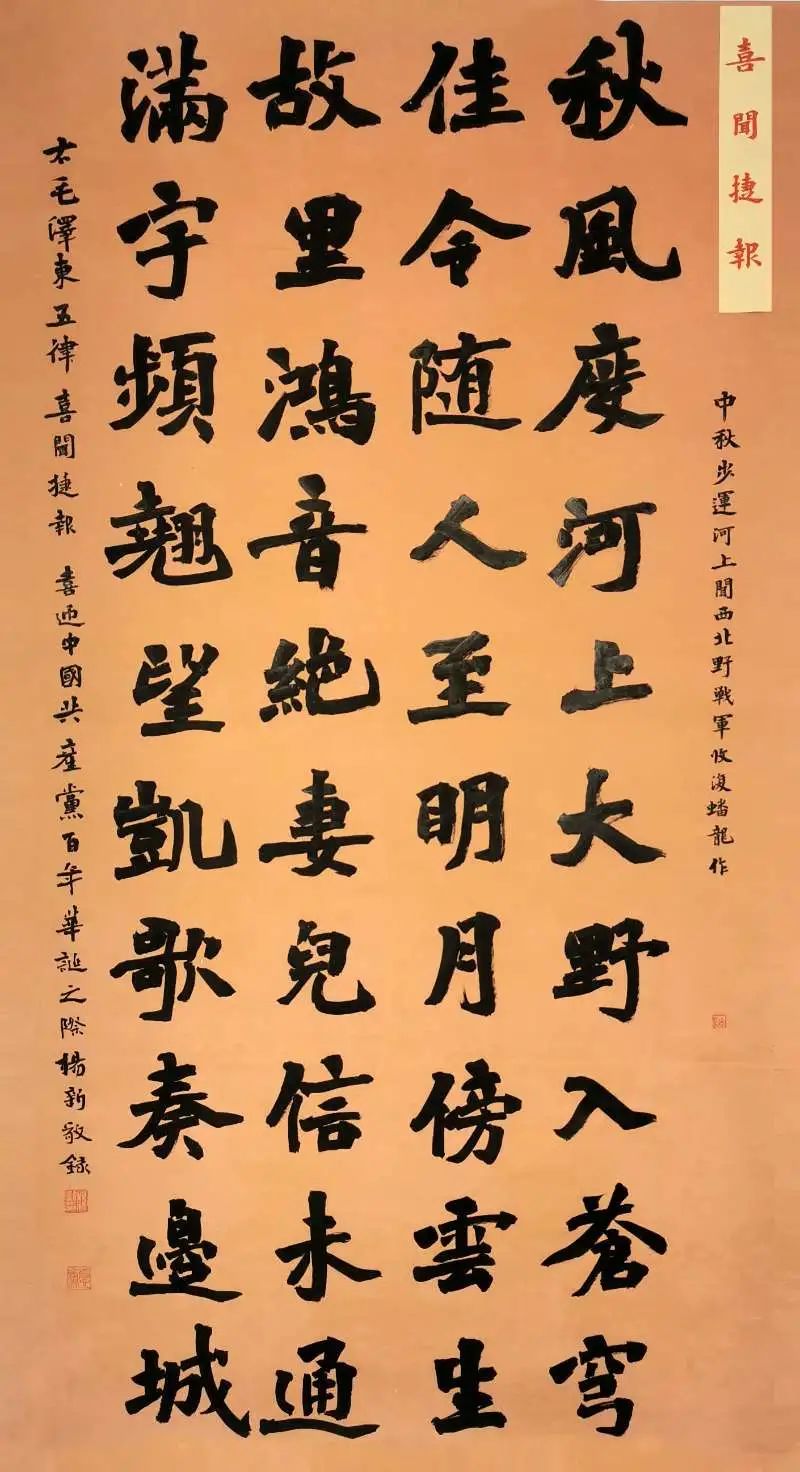 喜聞捷報
中秋步運河上聞西北野戰軍收復蟠龍作
秋風度河上大野入蒼穹
佳令随人至明月傍雲生
故里鴻音絶妻兒信未通
滿宇頻翹望凱歌奏邊城
右毛澤東五律 喜聞捷報 喜迎中國共產黨百年華誕之際楊新敬録